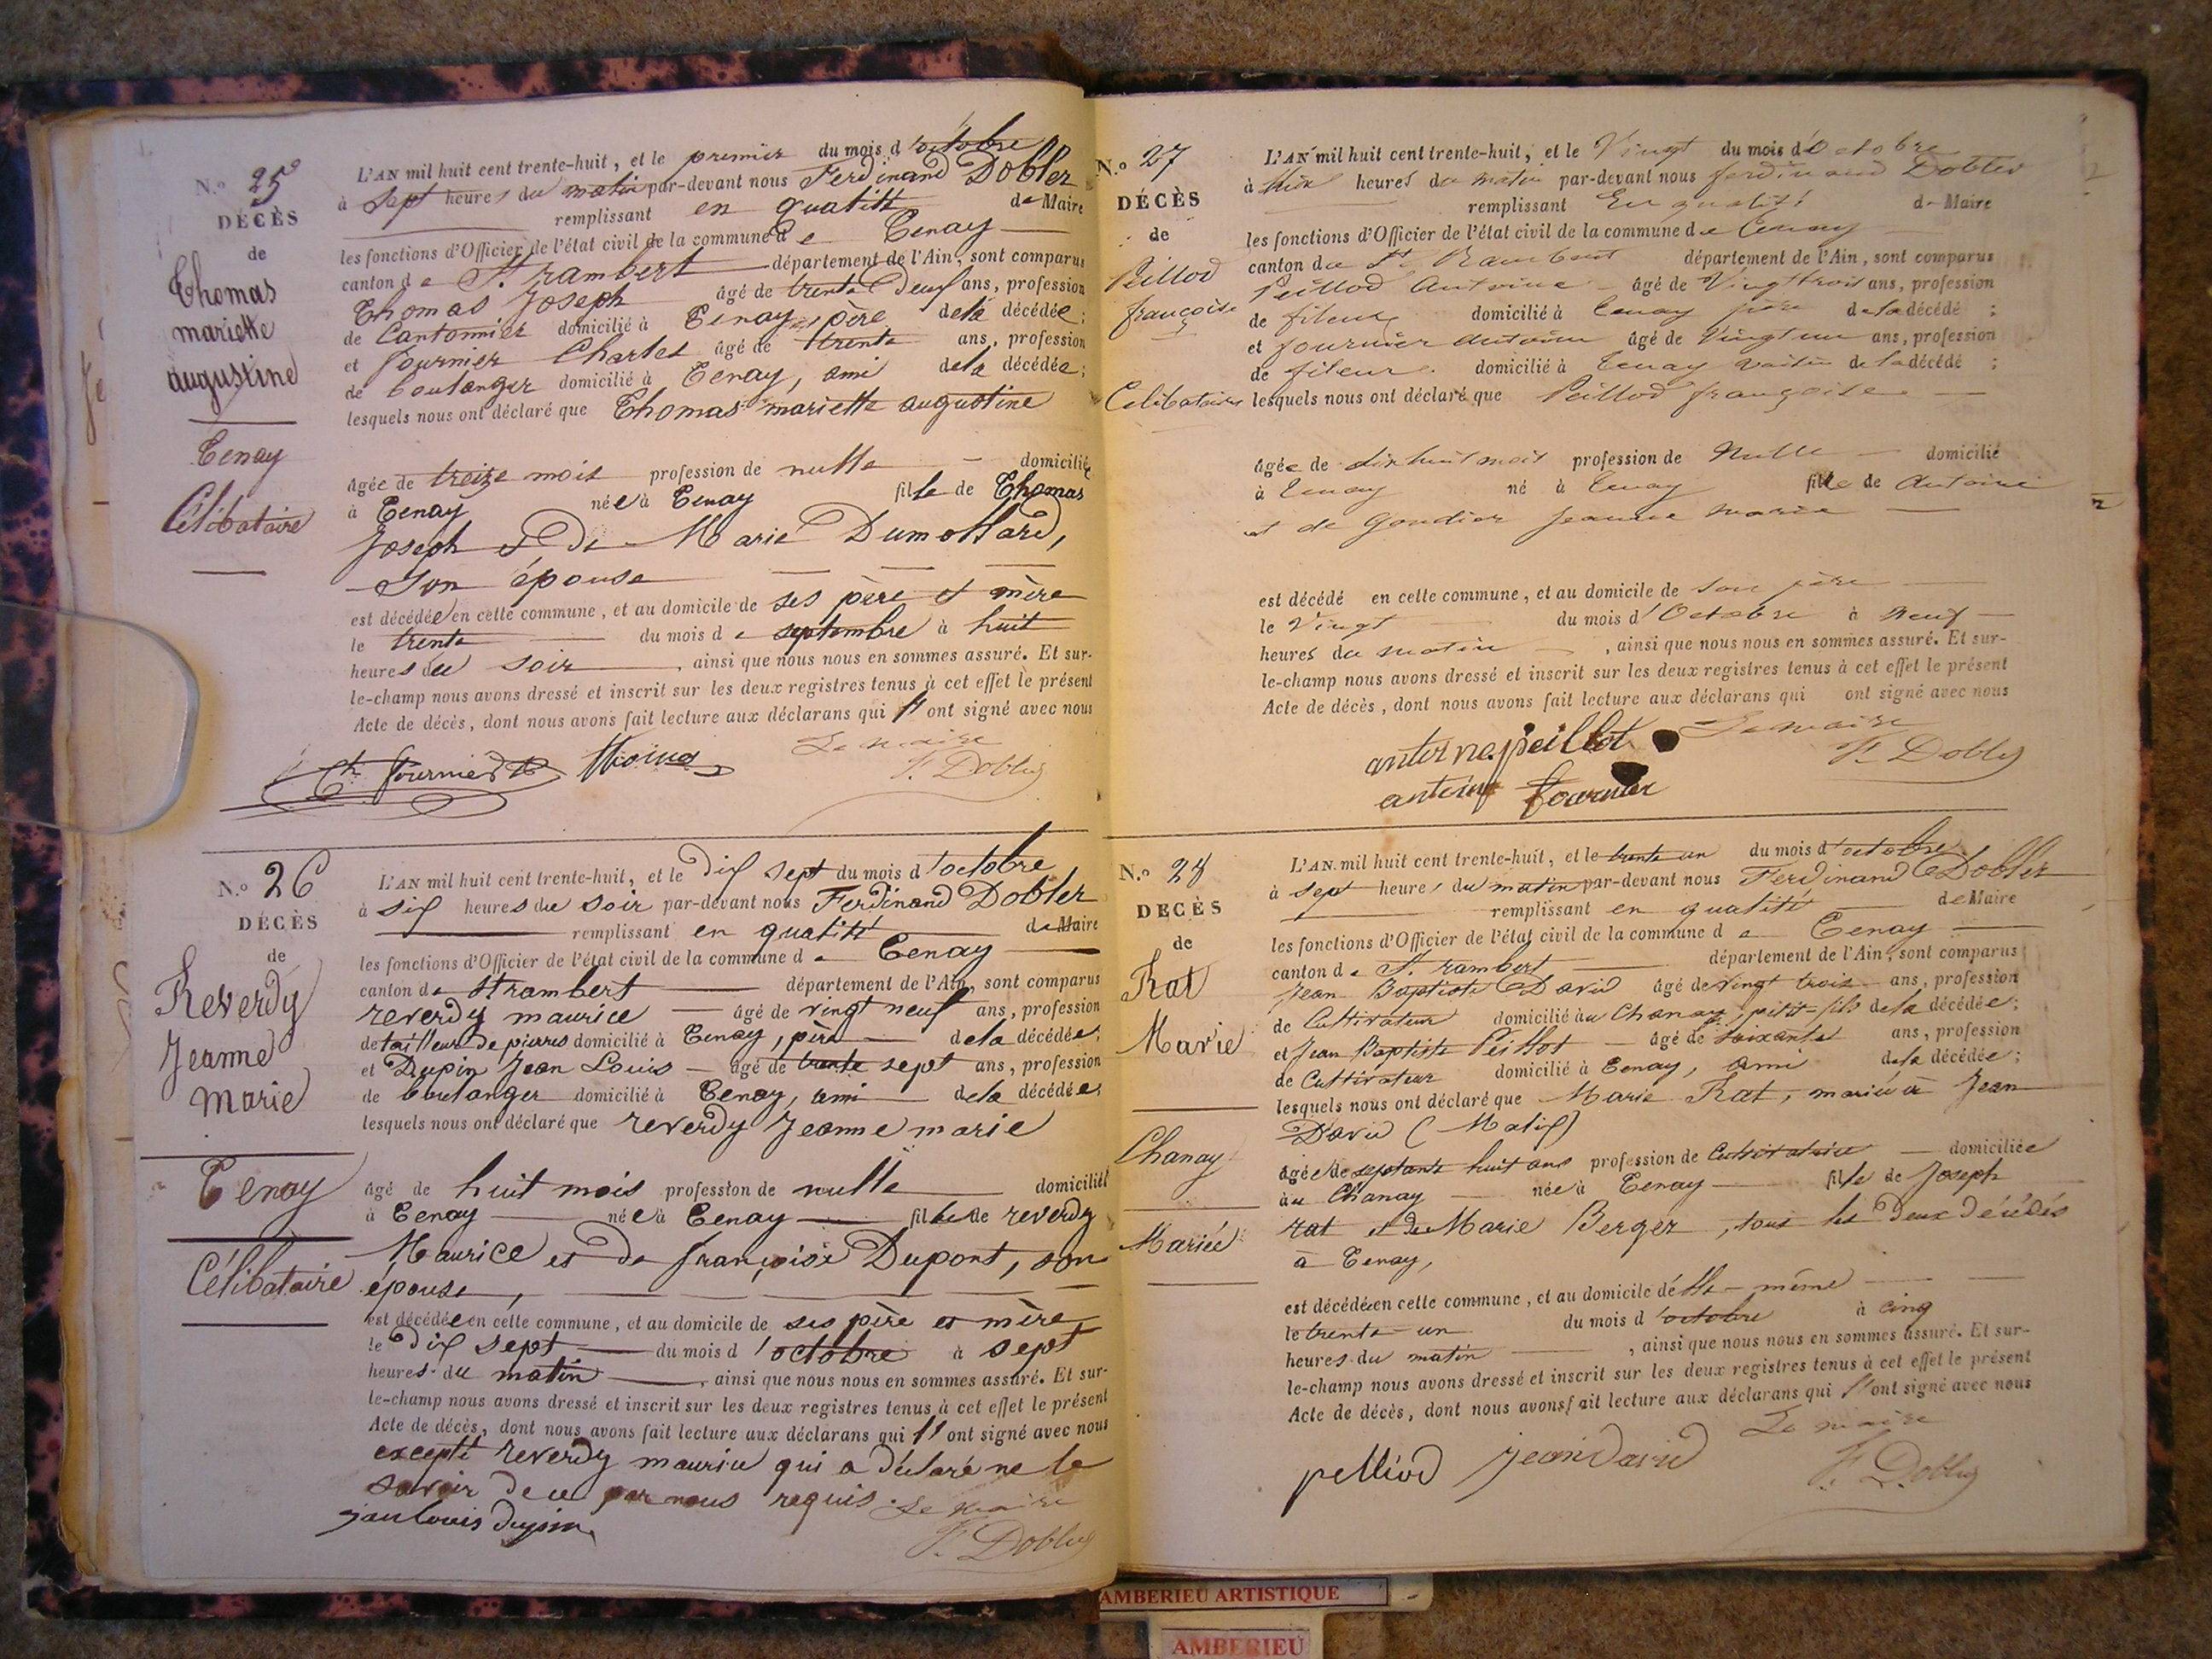 N.o 25
DÉCÈS
de
Thomas
mariette
augustine
Tenay
Célibataire
L'AN mil huit cent trente-huit, et le premier du mois d'octobre
à sept heures du matin par-devant nous Ferdinand Dobler
remplissant en qualité de Maire
les fonctions d'Officier de l'état civil de la commune de Tenay
canton de St. rambert département de l'Ain, sont comparus
Thomas Joseph âgé de trente deux ans, profession
de Cantonnier domicilié à Tenay, père de la décédée;
et fournier Charles âgé de trente ans, profession
de boulanger domicilié à Tenay, ami de la décédée;
lesquels nous ont déclaré que Thomas mariette augustine
âgée de treize mois profession de nulle domiciliée
à Tenay née à Tenay fille de Thomas
Joseph et de Marie Dumollard,
son épouse
est décédée en cette commune, et au domicile de ses père et mère
le trente du mois de septembre à huit
heures du soir, ainsi que nous nous en sommes assuré. Et sur-
le-champ nous avons dressé et inscrit sur les deux registres tenus à cet effet le présent
Acte de décès, dont nous avons fait lecture aux déclarans qui ont signé avec nous
Le maire
Ch fournier F. Dobler
N.o 26
DÉCÈS
de
Reverdy
Jeanne
Marie
Tenay
Célibataire
L'AN mil huit cent trente-huit, et le dix sept du mois d'octobre
à six heures du soir par-devant nous Ferdinand Dobler
remplissant en qualité de Maire
les fonctions d'Officier de l'état civil de la commune de Tenay
canton de St rambert département de l'Ain, sont comparus
reverdy maurice âgé de vingt neuf ans, profession
de tailleur de pierres domicilié à Tenay, père de la décédée;
et Dupin Jean Louis âgé de trente sept ans, profession
de boulanger domicilié à Tenay, ami de la décédée;
lesquels nous ont déclaré que reverdy Jeanne marie
âgé de huit mois profession de nulle domiciliée
à Tenay née à Tenay fille de reverdy
Maurice et de françoise Dupont, son
épouse,
est décédée en cette commune, et au domicile de ses père et mère
le dix sept du mois d'octobre à sept
heures du matin, ainsi que nous nous en sommes assuré. Et sur-
le-champ nous avons dressé et inscrit sur les deux registres tenus à cet effet le présent
Acte de décès, dont nous avons fait lecture aux déclarans qui ont signé avec nous
excepté reverdy maurice qui a déclaré ne le
savoir de ce par nous requis. Le maire
jan louis dupin F. Dobler
N.o 27
DÉCÈS
de
Peillod
françoise
Celibataire
L'AN mil huit cent trente-huit, et le Vingt du mois d'Octobre
à heures du matin par-devant nous ferdinand Dobler
remplissant En qualité de Maire
les fonctions d'Officier de l'état civil de la commune de Tenay
canton de St Rambert département de l'Ain, sont comparus
Peillod Antoine âgé de Vingt trois ans, profession
de fileur domicilié à Tenay père de la décédé;
et fournier Antoine âgé de Vingt un ans, profession
de fileur domicilié à Tenay voisin de la décédé;
lesquels nous ont déclaré que Peillod françoise
âgée de dix huit mois profession de Nulle domicilié
à Tenay né à Tenay fille de Antoine
et de Goudier Jeanne Marie
est décédé en cette commune, et au domicile de son père
le Vingt du mois d'Octobre à neuf
heures du matin, ainsi que nous nous en sommes assuré. Et sur-
le-champ nous avons dressé et inscrit sur les deux registres tenus à cet effet le présent
Acte de décès, dont nous avons fait lecture aux déclarans qui ont signé avec nous
antoine peillot Le maire
F. Dobler
antoine fournier
N.o 28
DÉCÈS
de
Rat
Marie
Chanay
Mariée
L'AN mil huit cent trente-huit, et le trente un du mois d'octobre
à sept heures du matin par-devant nous Ferdinand Dobler
remplissant en qualité de Maire
les fonctions d'Officier de l'état civil de la commune de Tenay
canton de St. rambert département de l'Ain, sont comparus
Jean Baptiste David âgé de vingt trois ans, profession
de Cultivateur domicilié au Chanay, petit-fils de la décédée;
et Jean Baptiste Peillot âgé de soixante ans, profession
de Cultivateur domicilié à Tenay, ami de la décédée;
lesquels nous ont déclaré que Marie Rat, mariée à Jean
David (Matif)
âgée de septante huit ans profession de Cultivatrice domiciliée
au Chanay née à Tenay fille de Joseph
rat et de Marie Berger, tous les deux décédés
à Tenay,
est décédée en cette commune, et au domicile d'elle-même
le trente-un du mois d'octobre à cinq
heures du matin, ainsi que nous nous en sommes assuré. Et sur-
le-champ nous avons dressé et inscrit sur les deux registres tenus à cet effet le présent
Acte de décès, dont nous avons fait lecture aux déclarans qui ont signé avec nous
Le maire
pelliod Jean David F. Dobler
AMBERIEU ARTISTIQUE
AMBERIEU